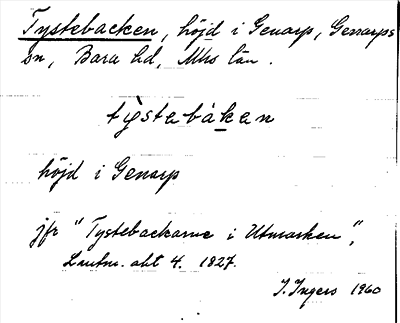 Tystebacken, höjd i Genarp, Genarps
sn, Bara hd, Mhs län.
tỳstabák̲an
höjd i Genarp
jfr "Tystebackarne i Utmarken",
Lantm. akt 4. 1827.
I. Ingers 1960